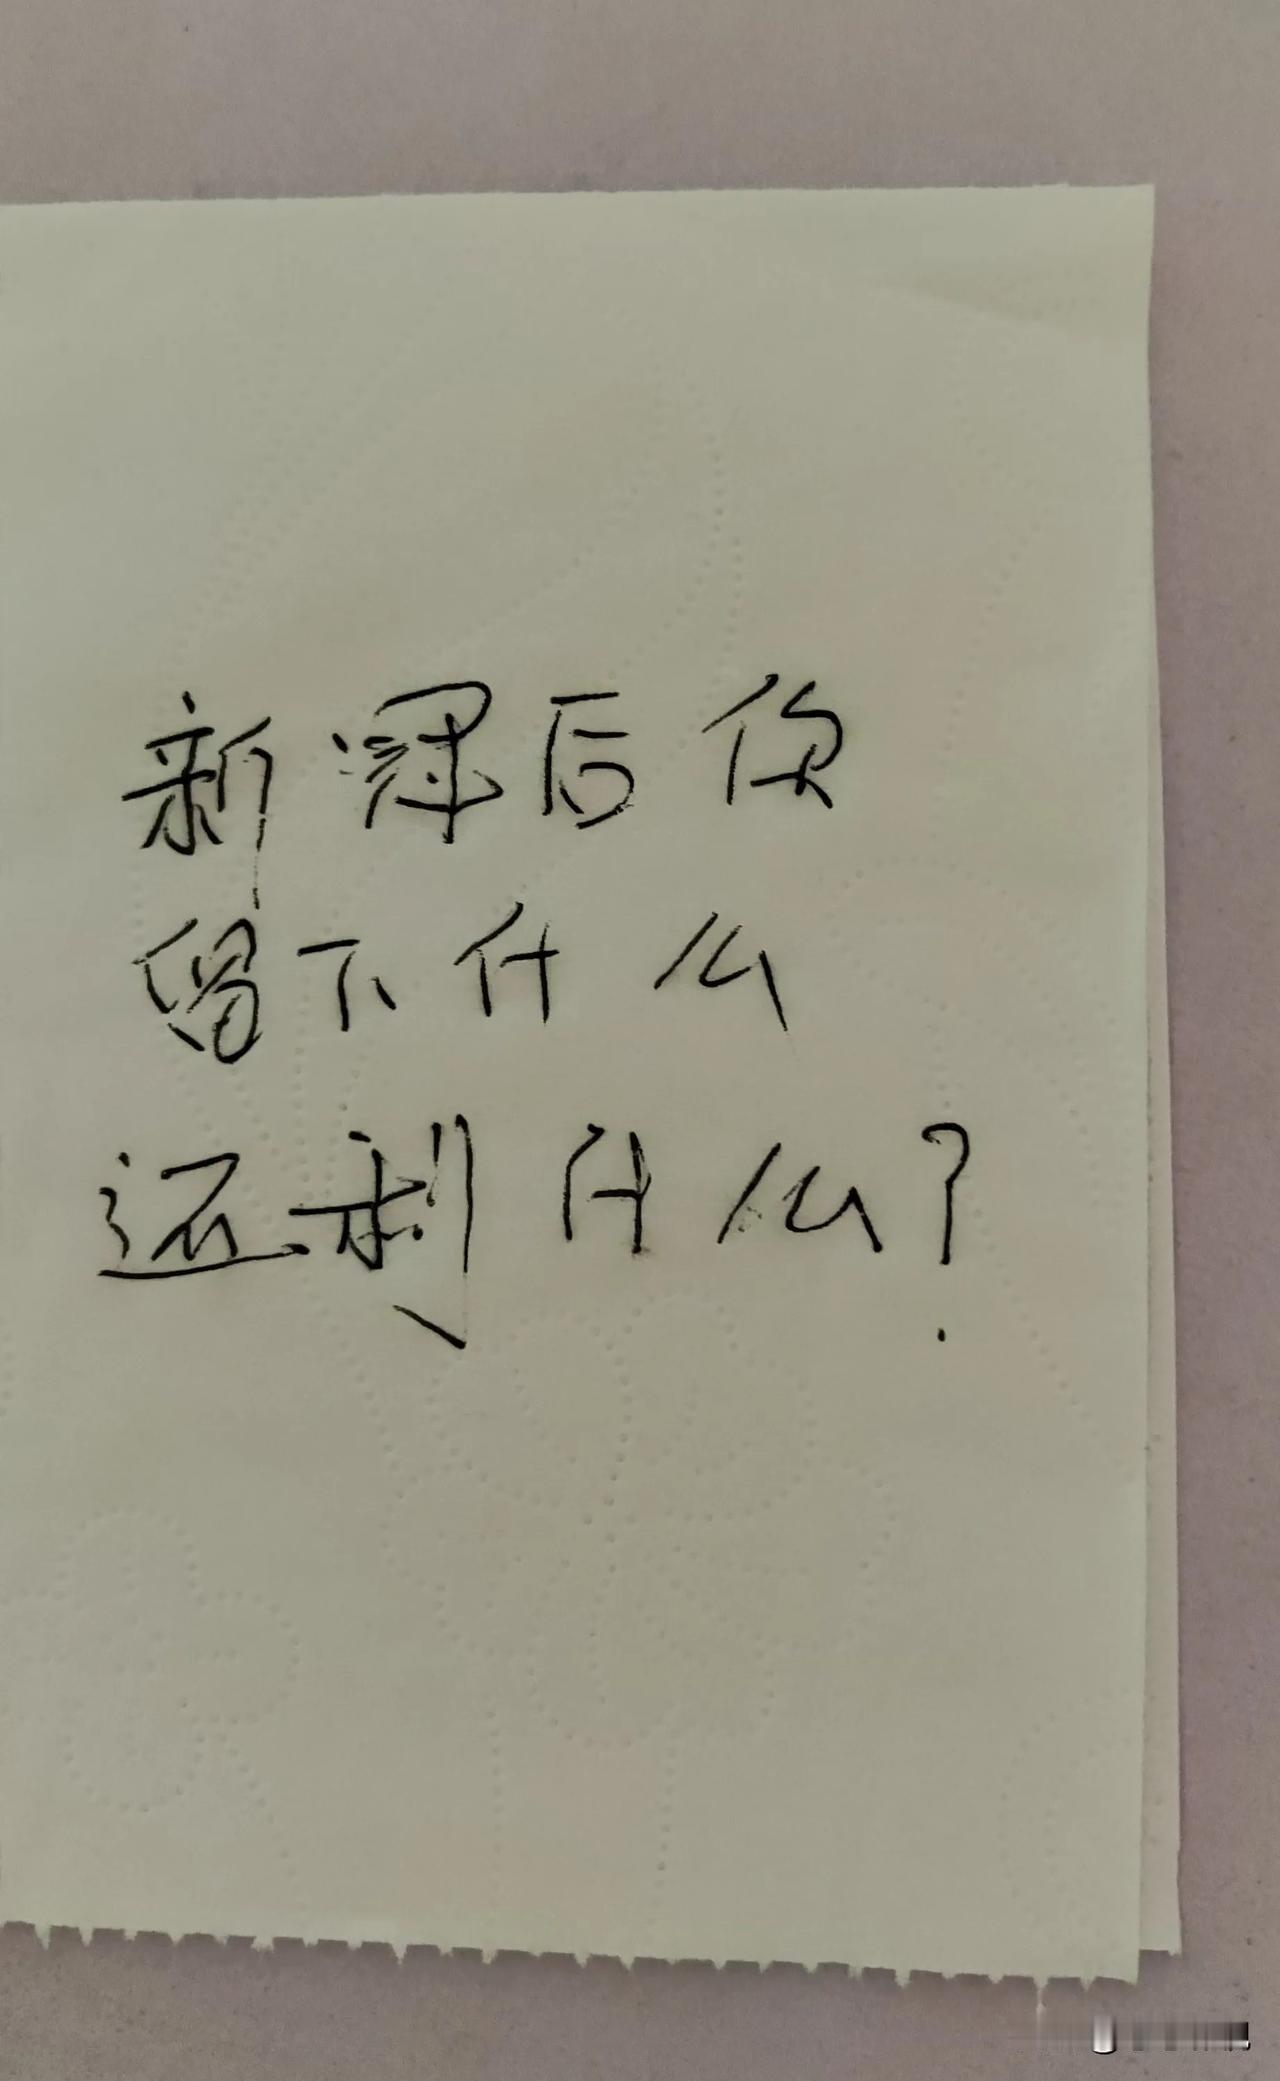 新 后你
留下什么
还剩什么?